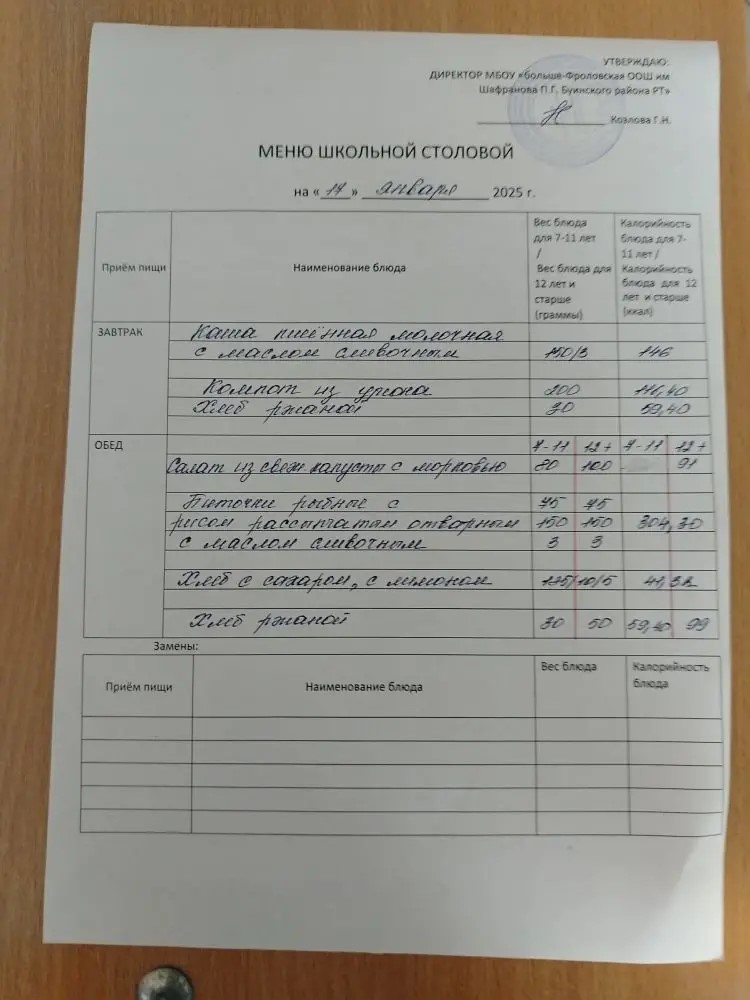 УТВЕРЖДАЮ:
ДИРЕКТОР МБОУ «больше-Фроловская ООШ им
Шафранова П.Г. Буинского района РТ»
Козлова Г.Н.
МЕНЮ ШКОЛЬНОЙ СТОЛОВОЙ
на «17» января 2025 г.
Приём пищи
Наименование блюда
Вес блюда
для 7-11 лет
/
Вес блюда для
12 лет и
старше
(граммы)
Калорийность
блюда для 7-
11 лет /
Калорийность
блюда для 12
лет и старше
(ккал)
ЗАВТРАК
Каша пшённая молочная
с маслом сливочным 150/3 146
Компот из урюка 200 116,40
Хлеб ржаной 30 59,40
ОБЕД 7-11 12+ 7-11 12+
Салат из свеж капусты с морковью 80 100 91
Биточки рыбные с 75 75
рисом рассыпчатым отварным 150 150 304,30
с маслом сливочным 3 3
Хлеб с сахаром, с лимоном 175/10/5 41,32
Хлеб ржаной 30 50 59,40 99
Замены:
Приём пищи
Наименование блюда
Вес блюда
Калорийность
блюда